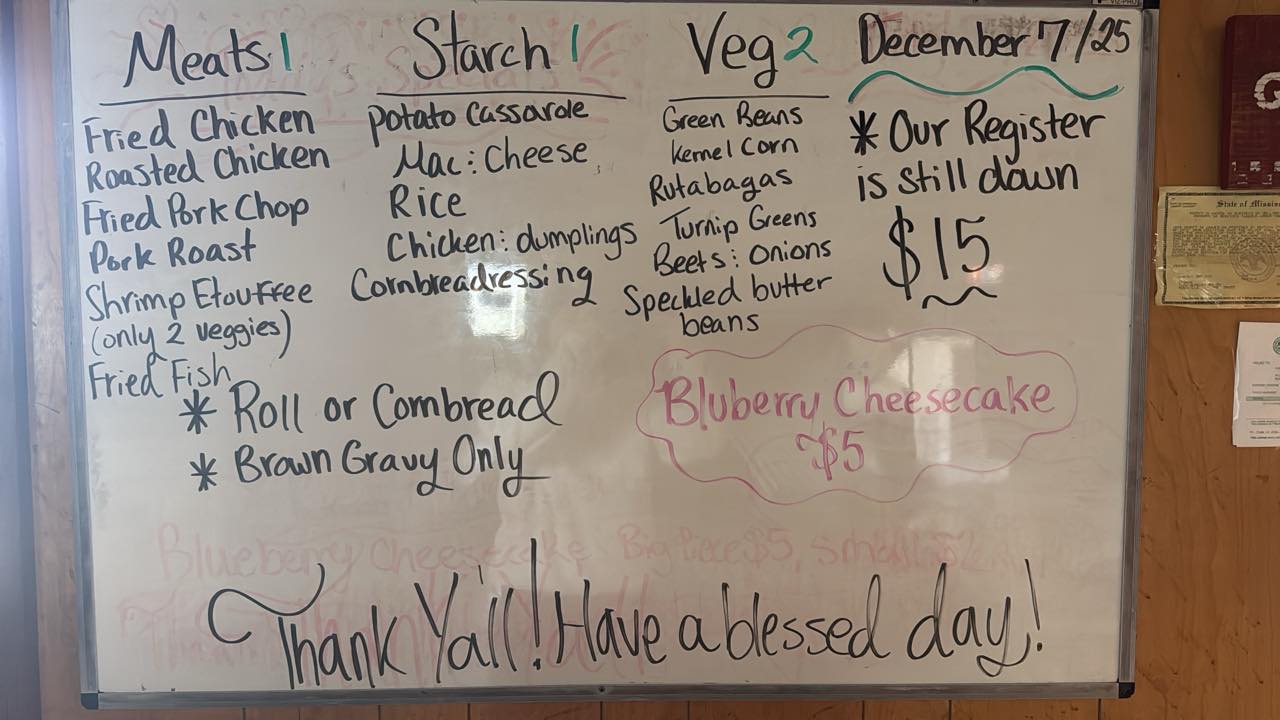 Meats 1
Fried Chicken
Roasted Chicken
Fried Pork Chop
Pork Roast
Shrimp Etouffee
(only 2 veggies)
Fried Fish
Starch 1
Potato Cassarole
Mac: Cheese
Rice
Chicken: dumplings
Cornbreadressing
Veg 2
Green Beans
Kernel Corn
Rutabagas
Turnip Greens
Beets: Onions
Speckled butter
beans
December 7/25
* Our Register
is still down
$15
* Roll or Cornbread
* Brown Gravy Only
Bluberry Cheesecake
$5
Blueberry Cheesecake Big Piece $5, small $2
Thank Ya'll! Have a blessed day!
State of Mississi
G